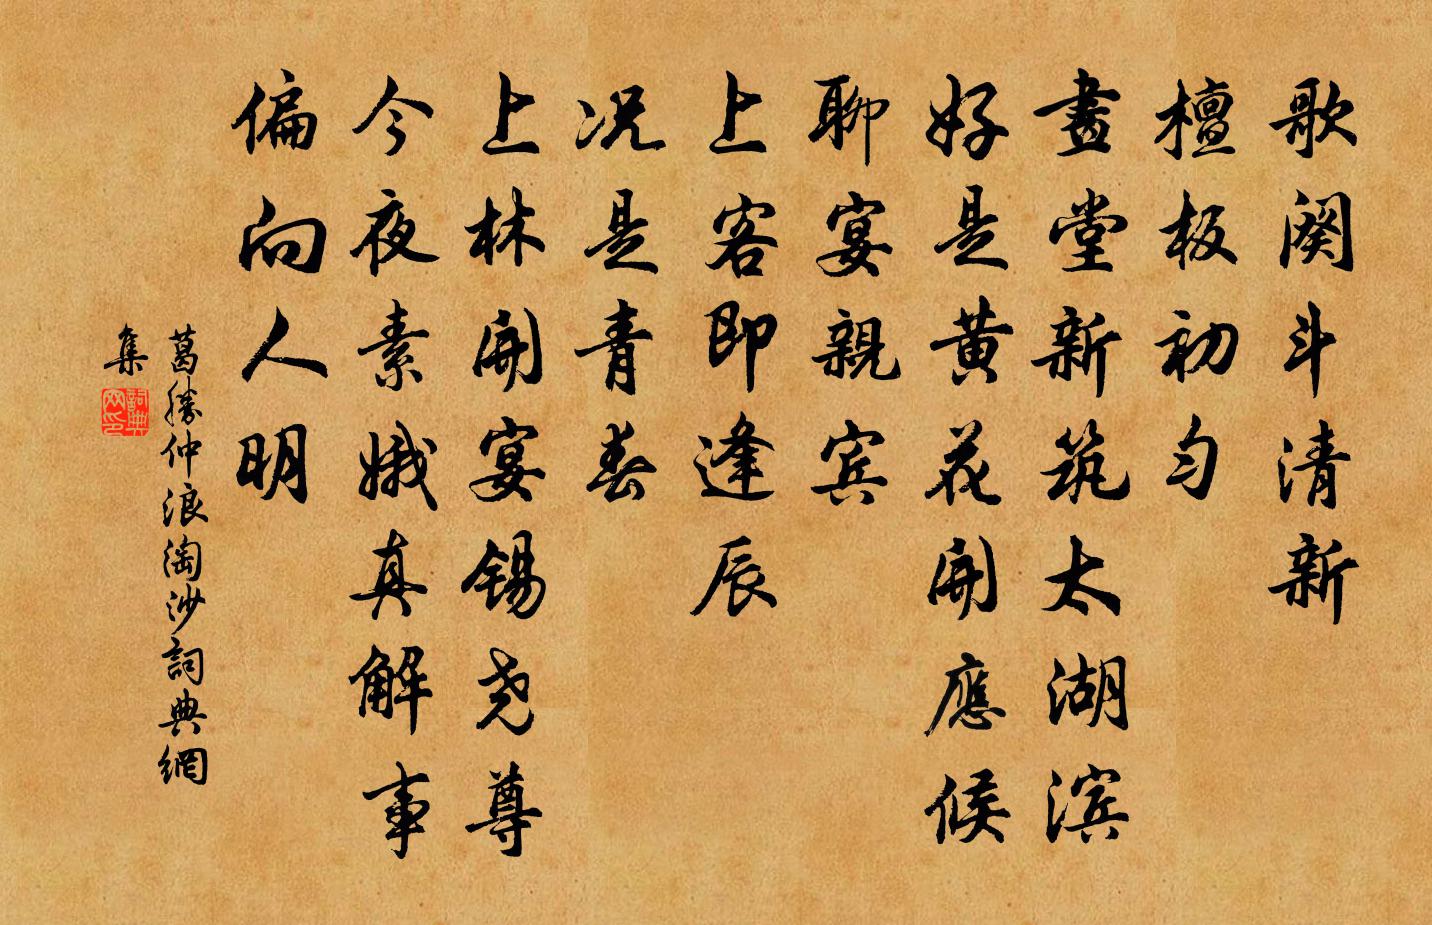 歌阕斗清新
檀板初匀
畫堂新筑太湖滨
好是黄花開應候
聊宴親宾
上客即逢辰
况是青春
上林開宴锡尧尊
今夜素娥真解事
偏向人明
葛勝仲浪淘沙詞典網
集
詞典網印